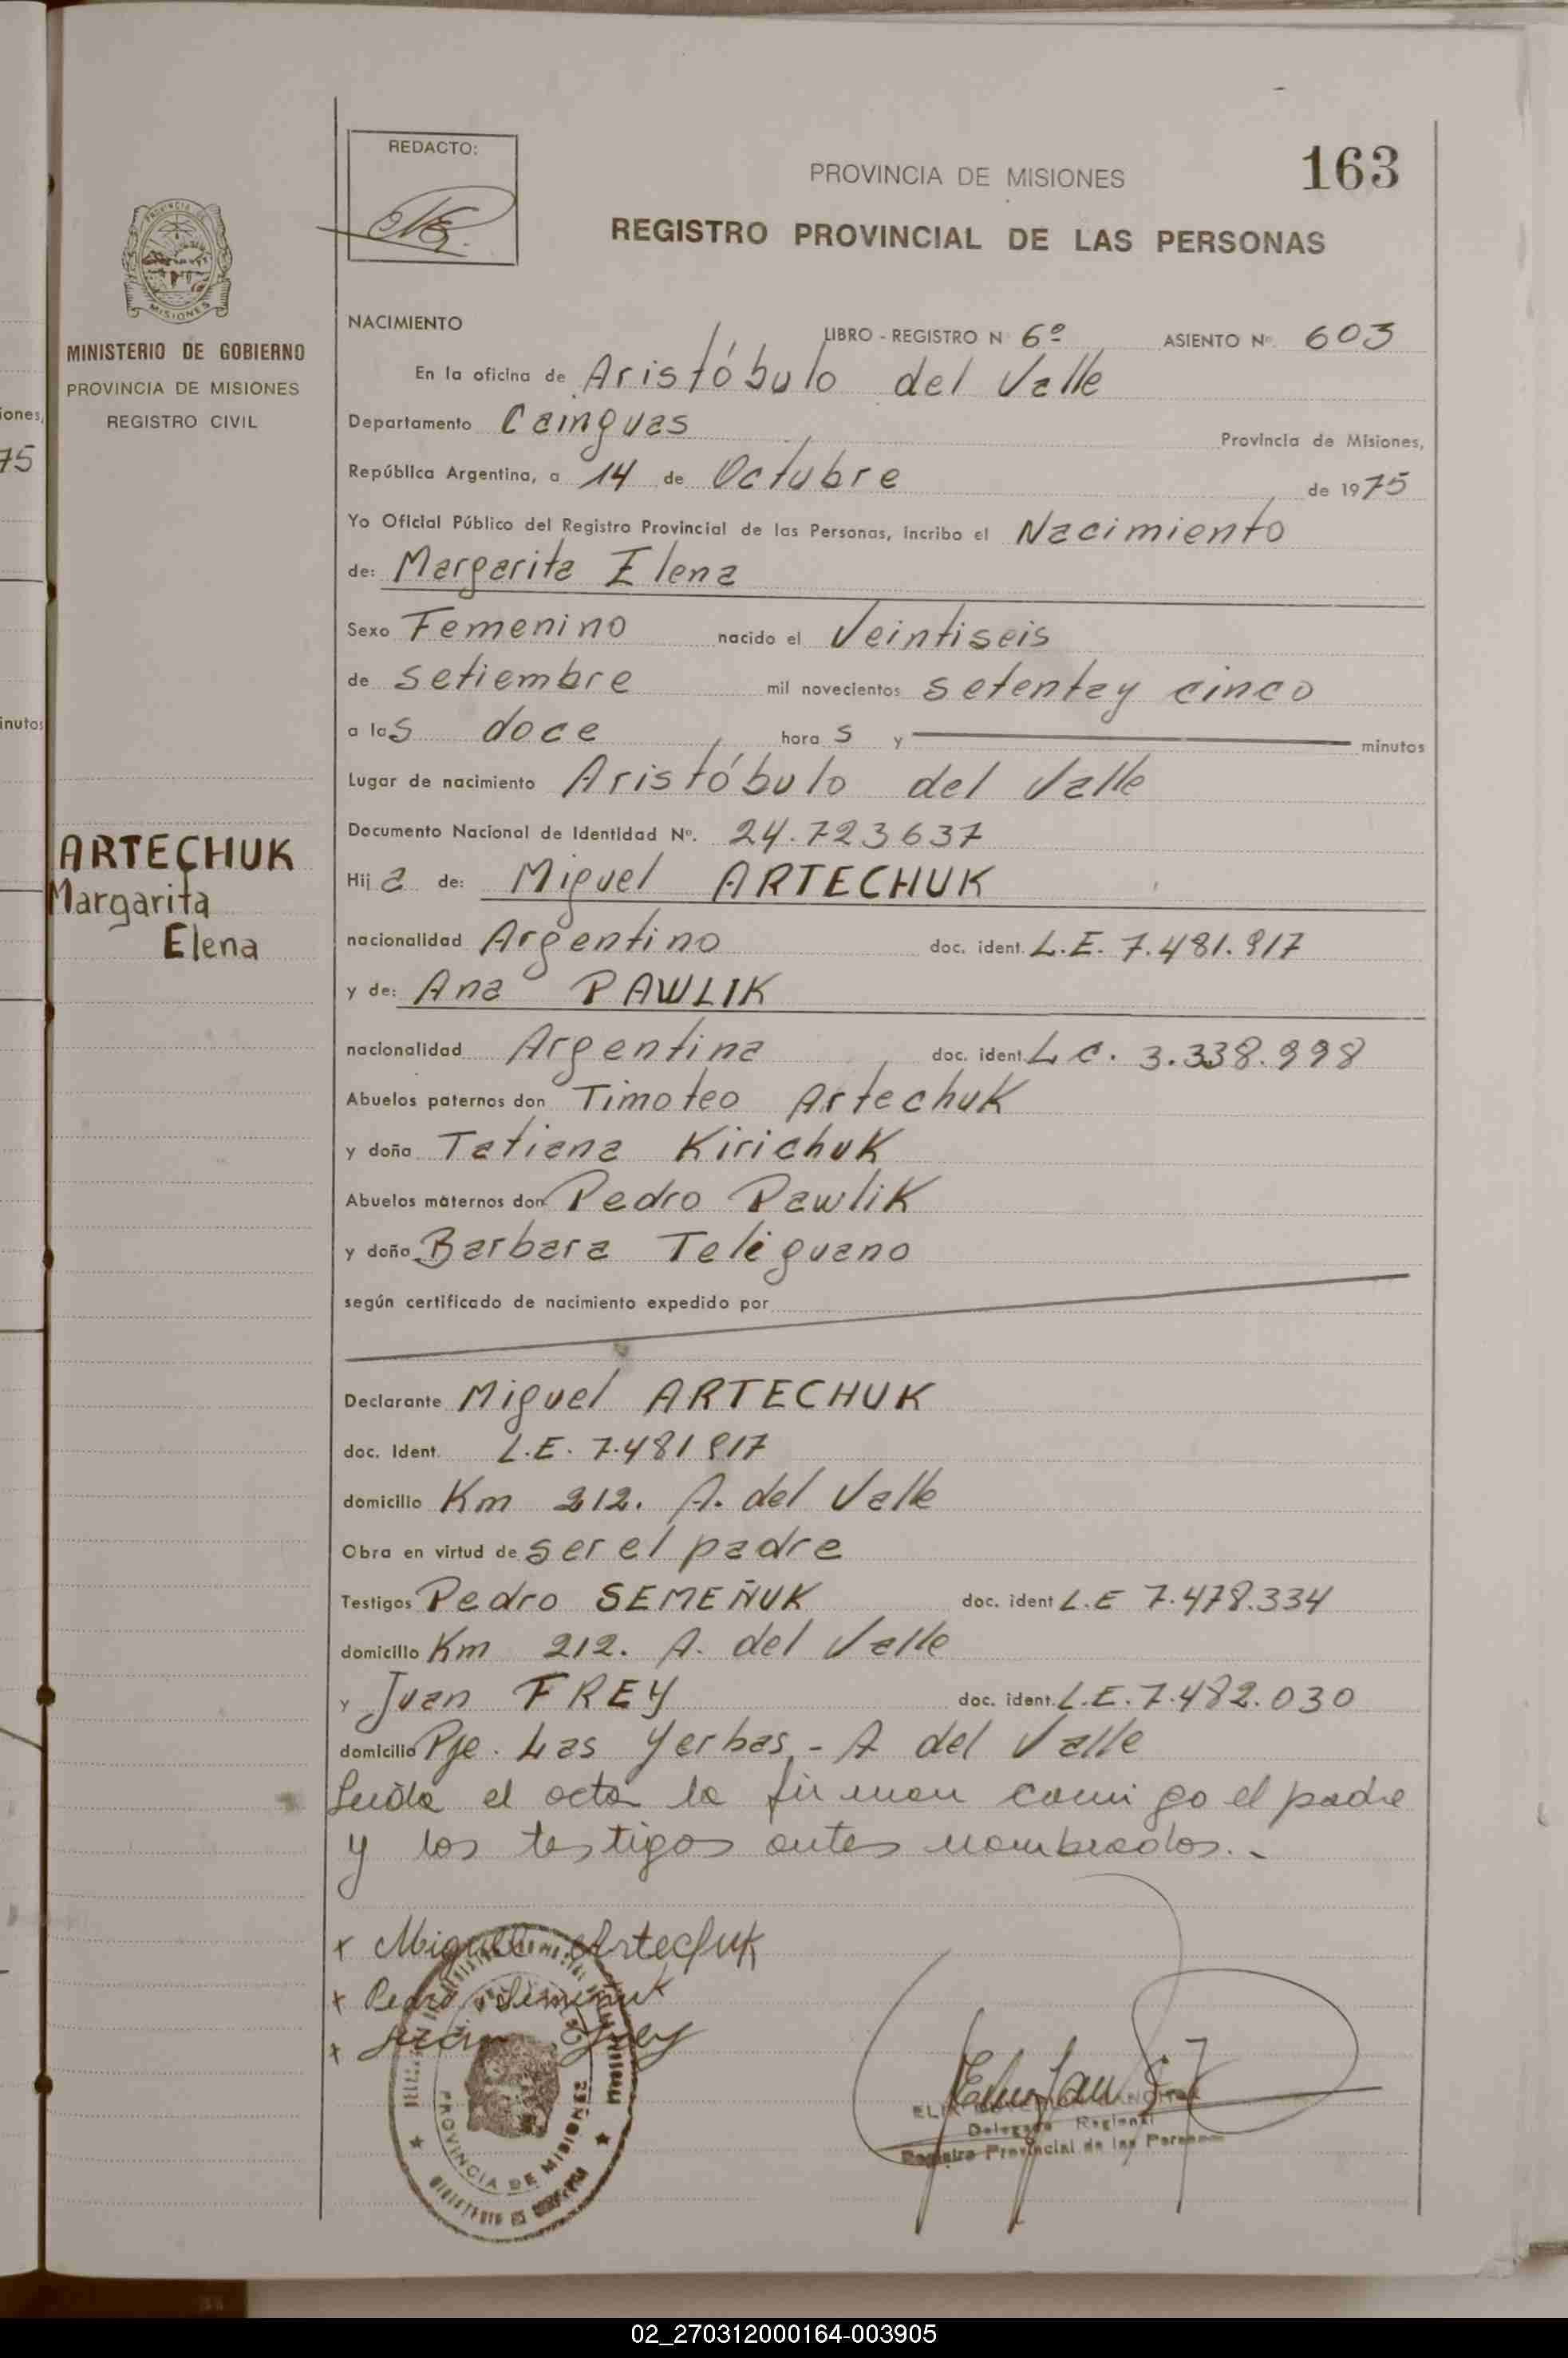 iones,
75
inutos
PROVINCIA DE
MISIONES
MINISTERIO DE GOBIERNO
PROVINCIA DE MISIONES
REGISTRO CIVIL
ARTECHUK
Margarita
Elena
REDACTO:
163
PROVINCIA DE MISIONES
REGISTRO PROVINCIAL DE LAS PERSONAS
NACIMIENTO LIBRO - REGISTRO N 6º ASIENTO Nº. 603
En la oficina de Aristóbulo del Valle
Departamento Cainguas Provincia de Misiones,
República Argentina, a 14 de Octubre de 1975
Yo Oficial Público del Registro Provincial de las Personas, incribo el Nacimiento
de: Margarita Elena
Sexo Femenino nacido el Veintiseis
de setiembre mil novecientos setentay cinco
a las doce horas y minutos
Lugar de nacimiento Aristóbulo del Valle
Documento Nacional de Identidad Nº. 24.723637
Hija de: Miguel ARTECHUK
nacionalidad Argentino doc. ident. L.E. 7.481.917
y de: Ana PAWLIK
nacionalidad Argentina doc. ident. L C. 3.338.998
Abuelos paternos don Timoteo Artechuk
y doña Tatiana Kirichuk
Abuelos maternos don Pedro Pawlik
y doña Barbara Teleguano
según certificado de nacimiento expedido por
Declarante Miguel ARTECHUK
doc. Ident. L.E. 7.481 917
domicilio Km 212. A. del Valle
Obra en virtud de ser el padre
Testigos Pedro SEMEÑUK doc. ident L.E 7.478.334
domicilio Km 212. A. del Valle
y Juan FREY doc. ident. L.E. 7.482.030
domicilio Pje. Las Yerbas - A del Valle
Leída el acta la firman comigo el padre
y los testigos antes nombrados.-
x Miguel Artechuk
x Pedro Semeñuk
x Juan Frey
PROVINCIA DE MISIONES
Delegado Regional
Registro Provincial de las Personas
02_270312000164-003905